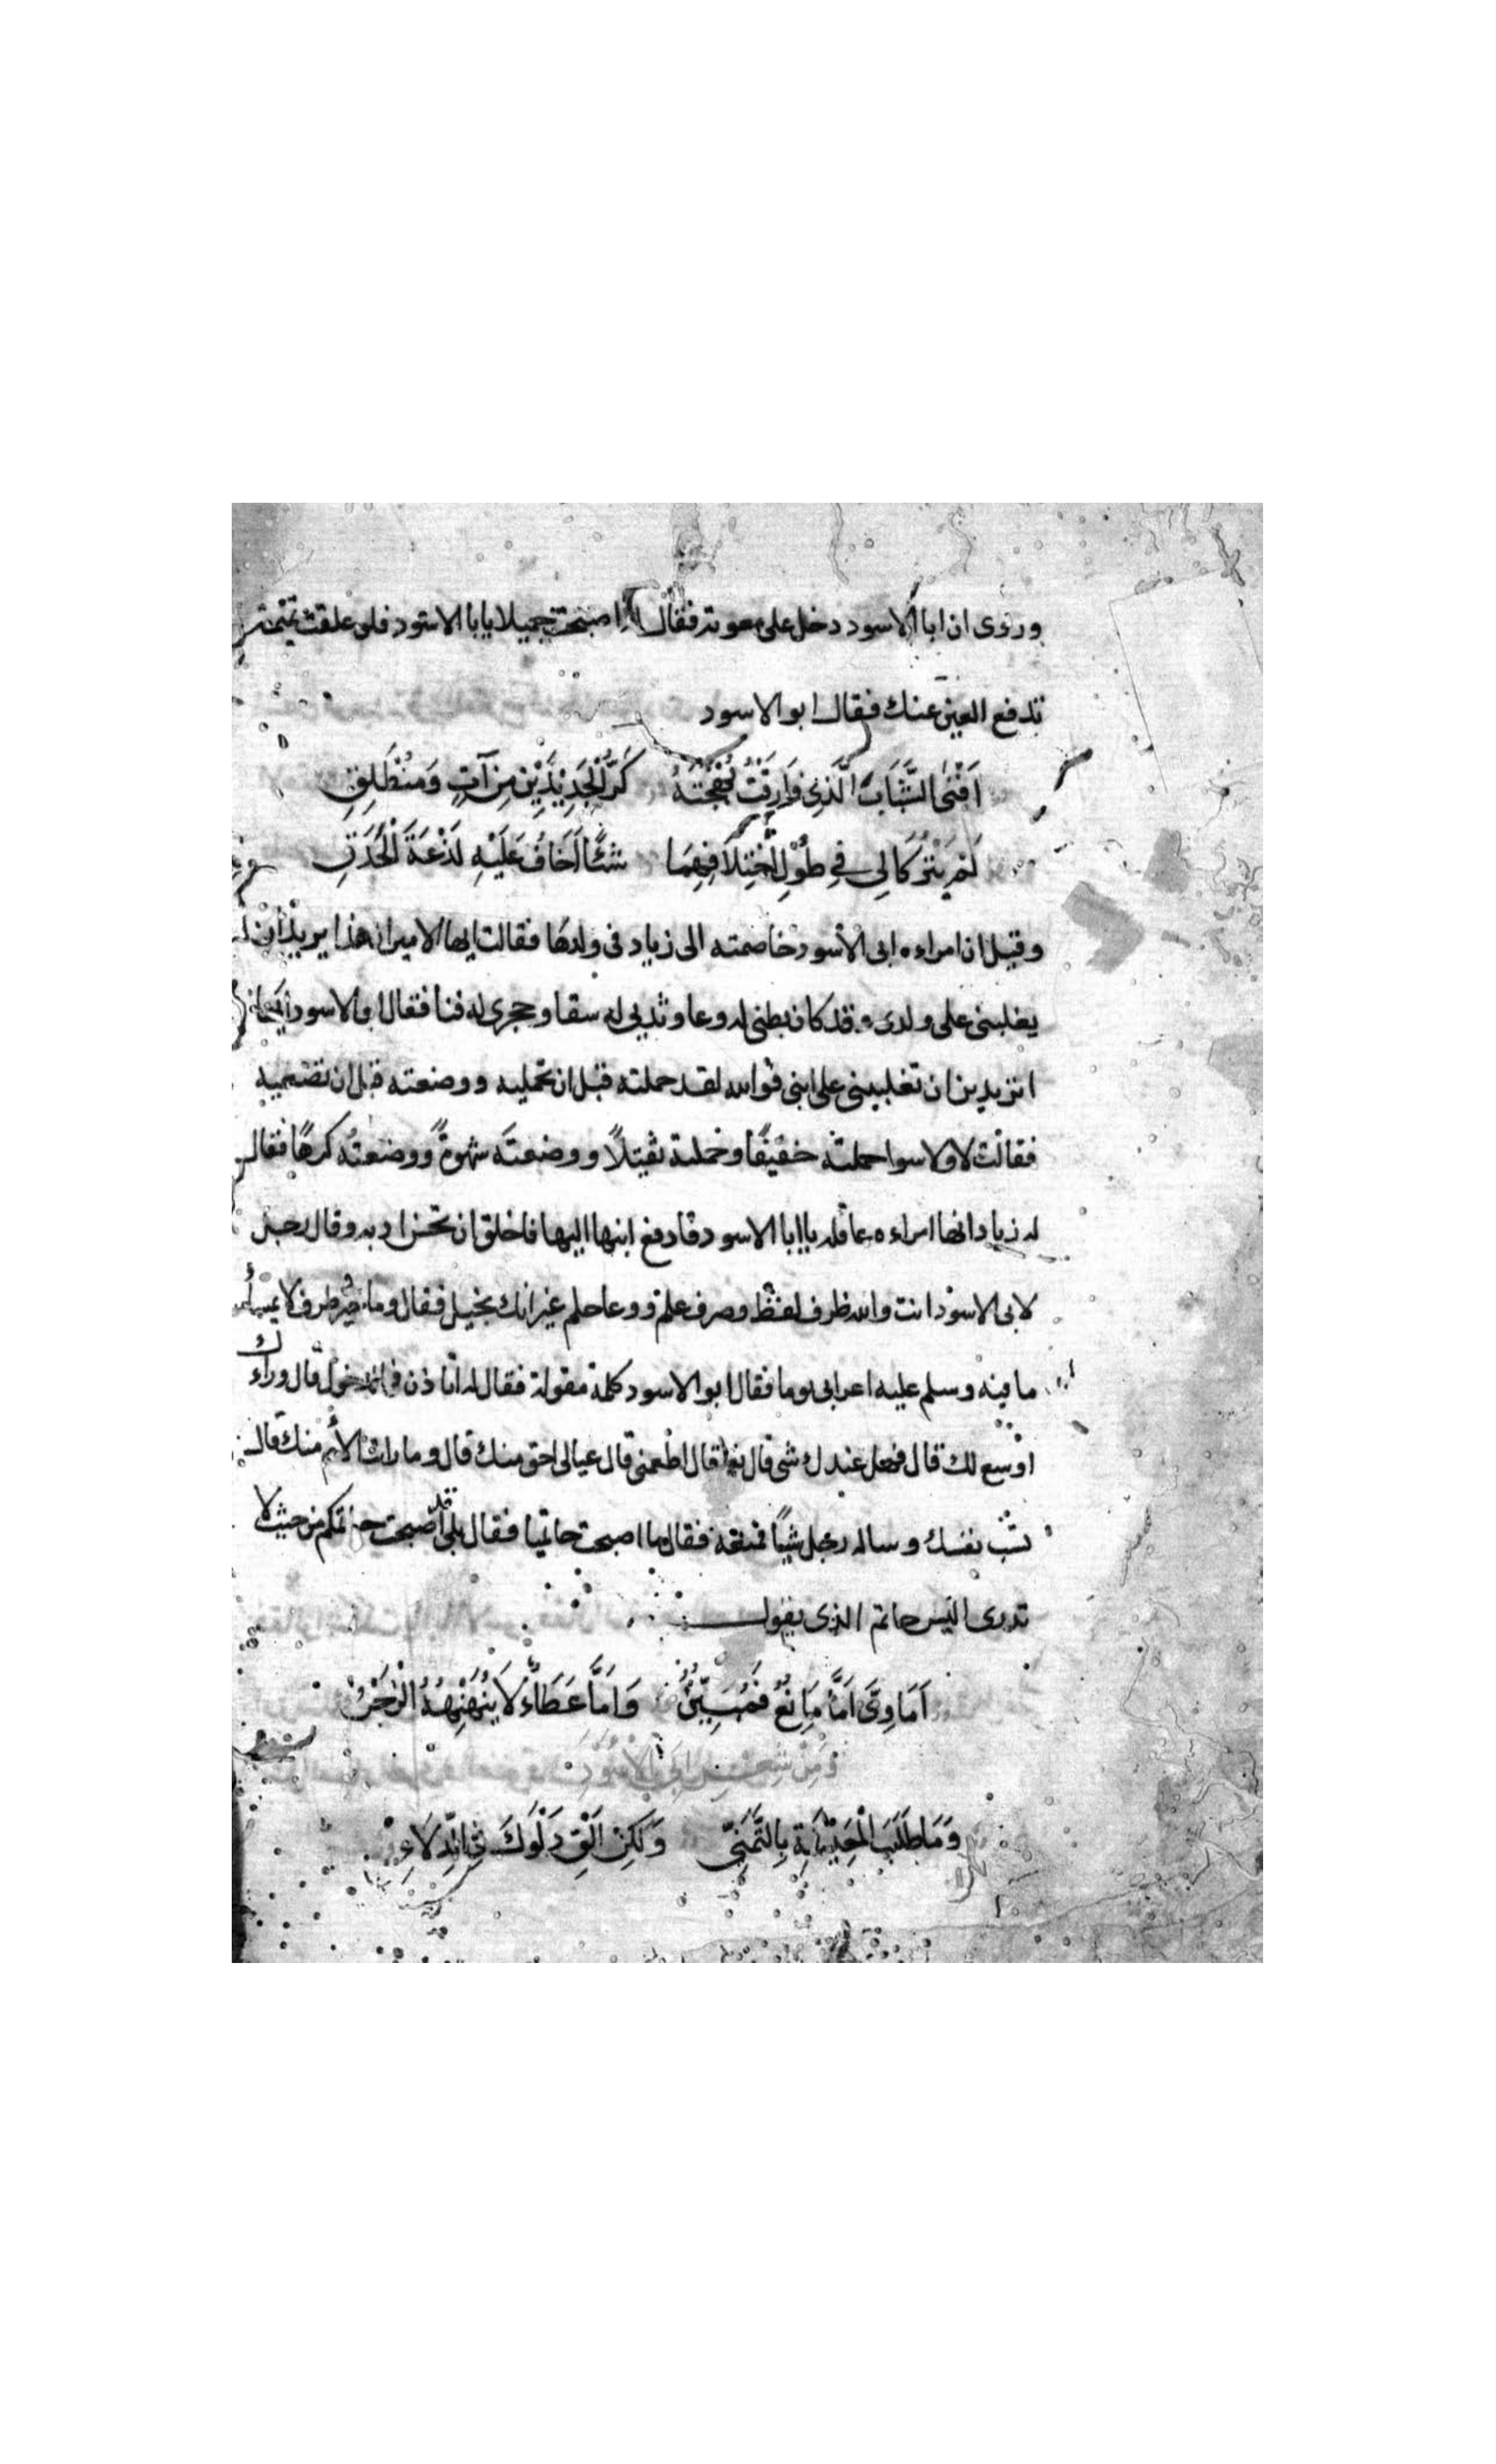 وروى ان ابا الاسود دخل على معوية فقال له اصبحت جميلا يابا الاسود فلو علقت تميمة
تدفع العين عنك فقال ابو الاسود
اَفْنَى الشَّبَابَ الَّذِى فَارَقْتُ بَهْجَتَهُ كَرُّ الْجَدِيْدَيْنِ مِنْ آتٍ وَمُنْطَلِقِ
لَمْ يَتْرُكَا لِى فِى طُوْلِ اخْتِلَافِهِمَا شَيْئًا اَخَافُ عَلَيْهِ لَذْعَةَ الْحَدَقِ
وقيل ان امراءه ابى الاسود خاصمته الى زياد فى ولدها فقالت ايها الامير ان هذا يريد ان
يغلبنى على ولدى وقد كان بطنى له وعا وثديى له سقا وحجرى له فنا فقال ابو الاسود
اتريدين ان تغلبينى على ابنى فوالله لقد حملته قبل ان تحمليه ووضعته قبل ان تضعيه
فقالت لا ولا سوا حملته خفيفًا وحملته ثقيلاً ووضعته شهوةً ووضعته كرهًا فقال
له زياد انها امراءه عاقله يا ابا الاسود فادفع ابنها اليها فاخلق ان تحسن ادبه وقال رجل
لابى الاسود انت والله ظرف لفظ وصرف علم ووعا حلم غير انك بخيل فقال وما خير ظرف لا يمسك
ما فيه وسلم عليه اعرابى يوما فقال ابو الاسود كلمة مقولة فقال له اتاذن فى الدخول قال وراك
اوسع لك قال فهل عندك شى قال نعم قال اطعمنى قال عيالى احق منك قال وما رات الأم منك قال
نسيت نفسك وساله رجل شيئًا فمنعه فقال ما اصبحت حاتميا فقال بلى قد اصبحت حاتمكم من حيث لا
تدرى اليس حاتم الذى يقول
اَمَاوِىَّ اَمَّا مَانِعٌ فَمُبَيِّنٌ وَاَمَّا عَطَاءٌ لَا يُنَهْنِهُهُ الزَّجْرُ
وَمِنْ شِعْرِ اَبِى الاَسْوَدِ
وَمَا طَلَبَ الْمَعِيْشَةِ بِالتَّمَنِّى وَلَكِنْ اَلْقِ دَلْوَكَ فِى الدِّلَاءِ